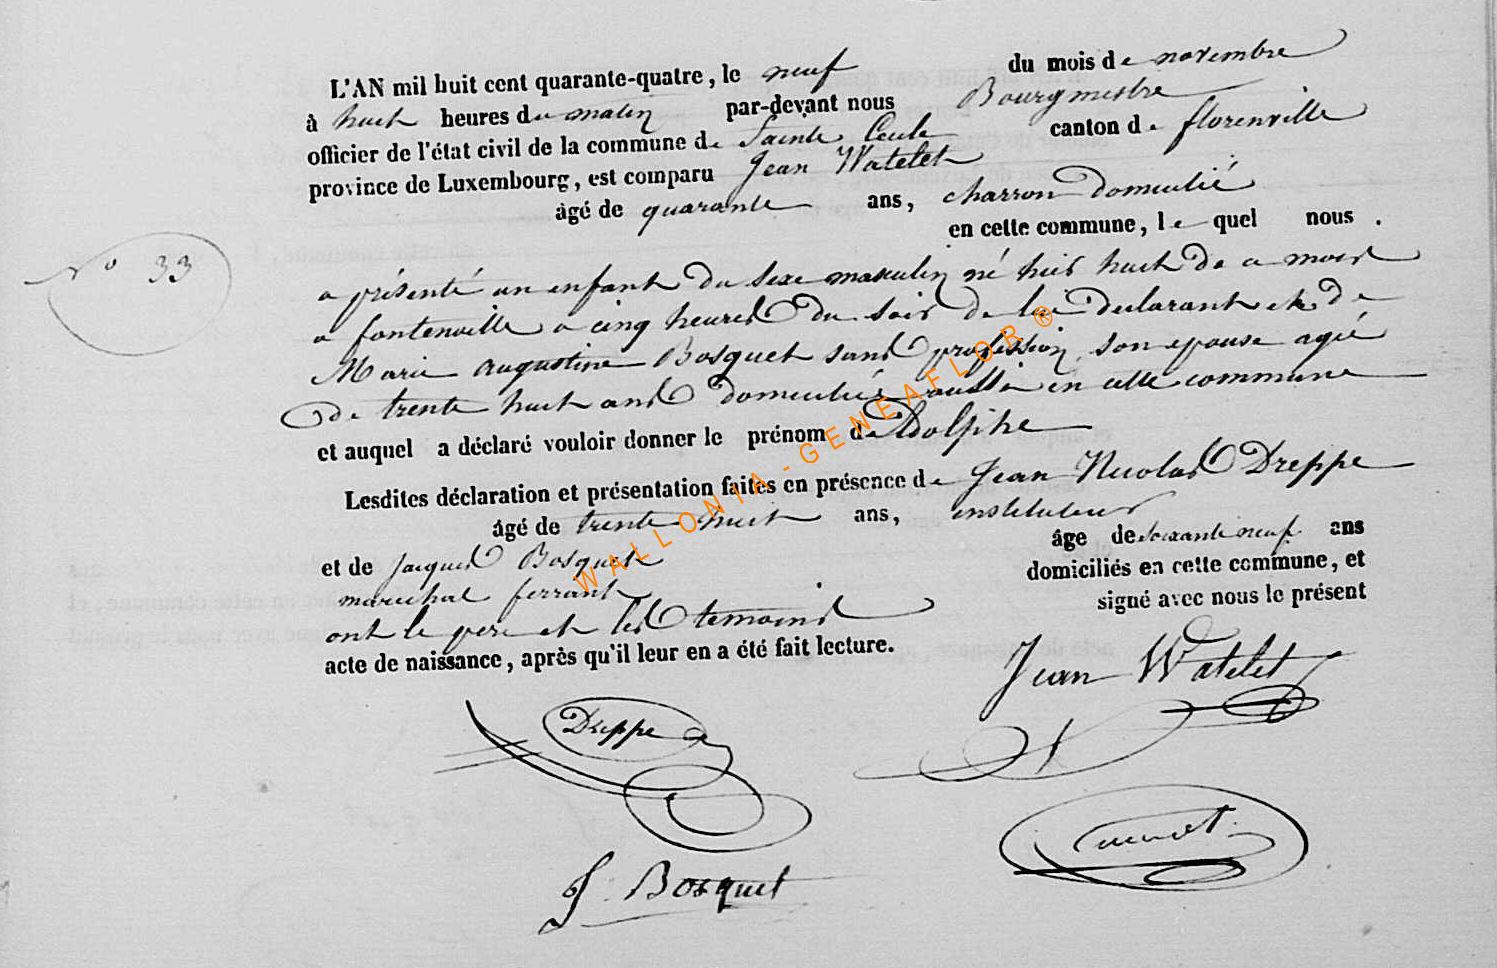 L'AN mil huit cent quarante-quatre, le neuf du mois de novembre
à huit heures du matin par-devant nous Bourgmestre
officier de l'état civil de la commune de Sainte Cecile canton de florenville
province de Luxembourg, est comparu Jean Watelet
âgé de quarante ans, charron domicilié
en cette commune, lequel nous
N° 33
a présenté un enfant du sexe masculin né hier huit de ce mois
a fontenoille a cinq heures du soir de lui declarant et de
Marie Augustine Bosquet sans profession, son epouse agée
de trente huit ans domiciliés aussi en cette commune
et auquel a déclaré vouloir donner le prénom de Adolphe
Lesdites déclaration et présentation faites en présence de Jean Nicolas Dreppe
âgé de trente huit ans, instituteur
et de Jacques Bosquet âge de soixante neuf ans
marechal ferrant domiciliés en cette commune, et
ont le pere et les temoins signé avec nous le présent
acte de naissance, après qu'il leur en a été fait lecture.
Jean Watelet
Dreppe
J. Bosquet
WALLONIA-GENEAFLOR®